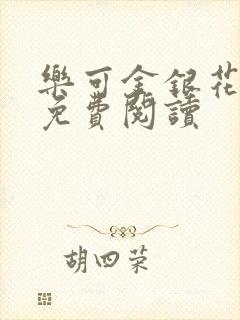 樂可金銀花
免費閱讀
胡四荣